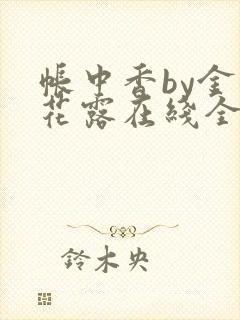 帐中香by金
花露在线全
铃木央